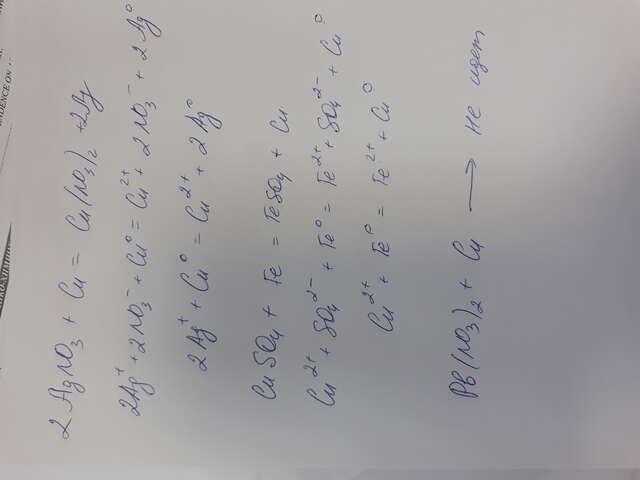 ENDENCE ON
2 AgNO₃ + Cu = Cu(NO₃)₂ + 2Ag
2Ag⁺ + 2NO₃⁻ + Cu⁰ = Cu²⁺ + 2NO₃⁻ + 2Ag⁰
2Ag⁺ + Cu⁰ = Cu²⁺ + 2Ag⁰
CuSO₄ + Fe = FeSO₄ + Cu
Cu²⁺ + SO₄²⁻ + Fe⁰ = Fe²⁺ + SO₄²⁻ + Cu⁰
Cu²⁺ + Fe⁰ = Fe²⁺ + Cu⁰
Pb(NO₃)₂ + Cu ⟶ не идет